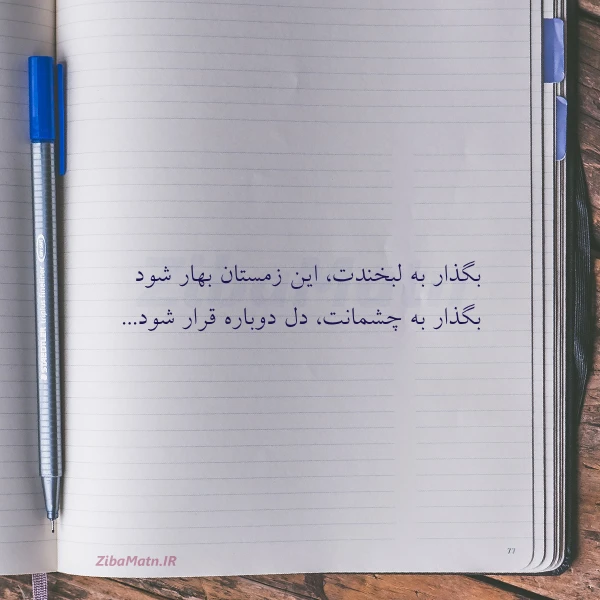 بگذار به لبخندت، این زمستان بهار شود
بگذار به چشمانت، دل دوباره قرار شود...
ZibaMatn.IR
77